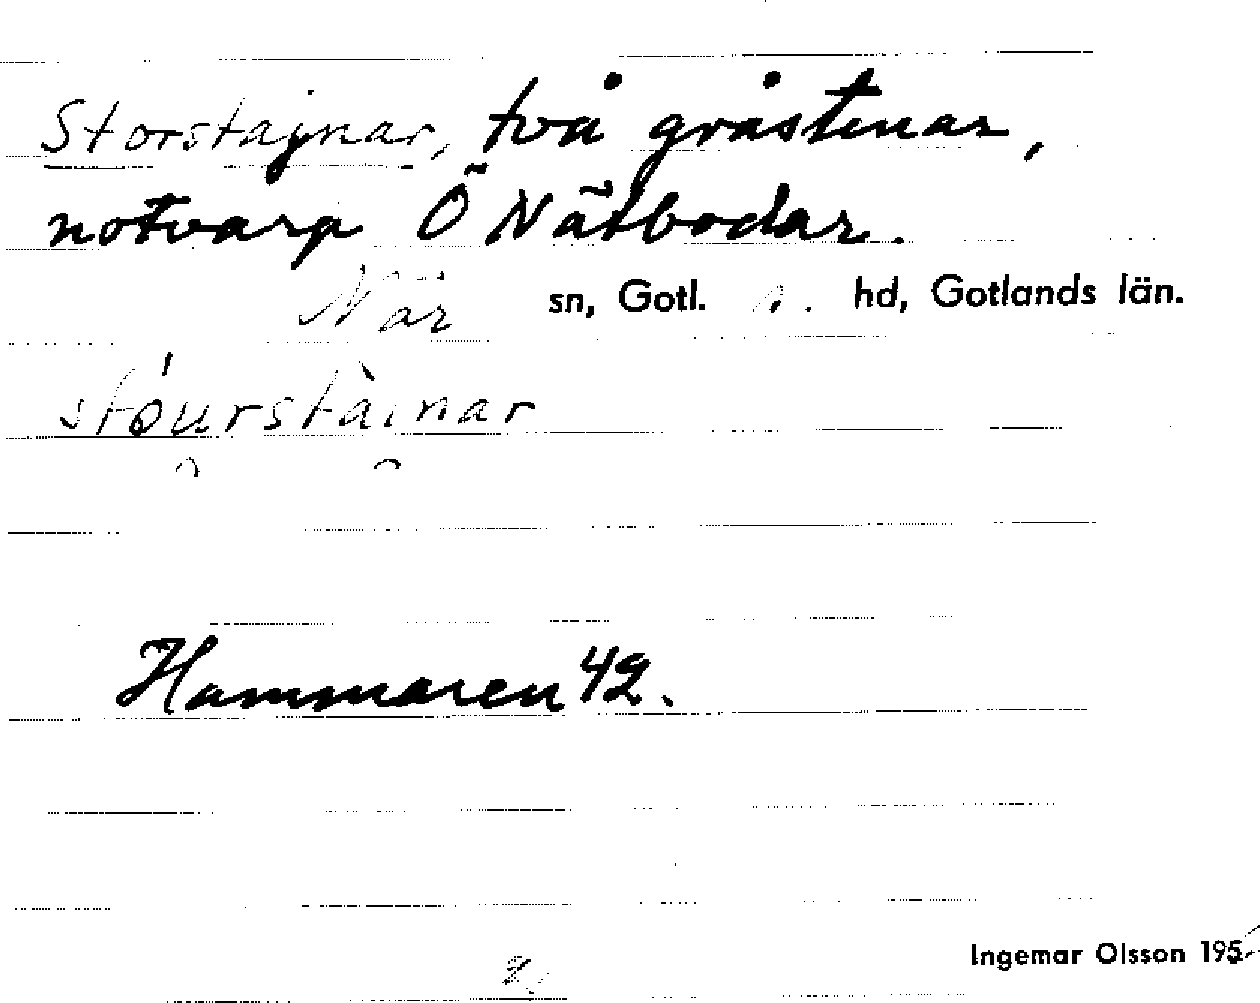 Storstajnar, två gråstenar,
notvarp Ö Nätbodar.
När sn, Gotl. s. hd, Gotlands län.
stóu̯rstài̯nar
Hammaren 42.
Ingemar Olsson 195